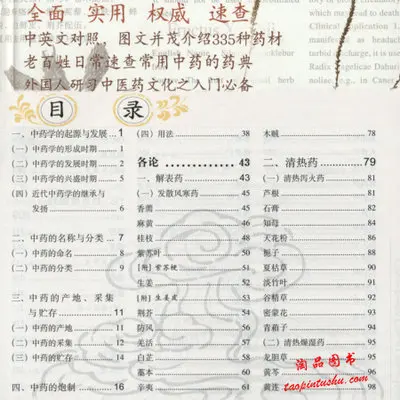 全面 实用 权威 速查
中英文对照 图文并茂介绍335种药材
老百姓日常速查常用中药的药典
外国人研习中医药文化之入门必备
目 录
一、中药学的起源与发展 1
(一) 中药学的形成时期 1
(二) 中药学的发展时期 2
(三) 中药学的兴盛时期 4
(四) 近代中药学的继承与
发扬 6
二、中药的名称与分类 7
(一) 中药的命名 8
(二) 中药的分类 9
三、中药的产地、采集
与贮存 11
(一) 中药的产地 11
(二) 中药的采集 12
(三) 中药的贮存 14
四、中药的炮制 16
(四) 用法 38
各论 43
一、解表药 43
(一) 发散风寒药 45
香薷 45
麻黄 46
桂枝 48
紫苏叶 50
[附] 紫苏梗 51
生姜 52
[附] 生姜皮 53
荆芥 54
防风 56
羌活 57
白芷 58
藁本 60
辛夷 61
木贼 78
二、清热药 79
(一) 清热泻火药 81
芦根 81
石膏 82
知母 84
天花粉 86
栀子 88
夏枯草 90
淡竹叶 91
谷精草 92
密蒙花 93
青葙子 94
(二) 清热燥湿药 95
龙胆草
黄芩
黄连 98
淘品图书
taopintushu.com